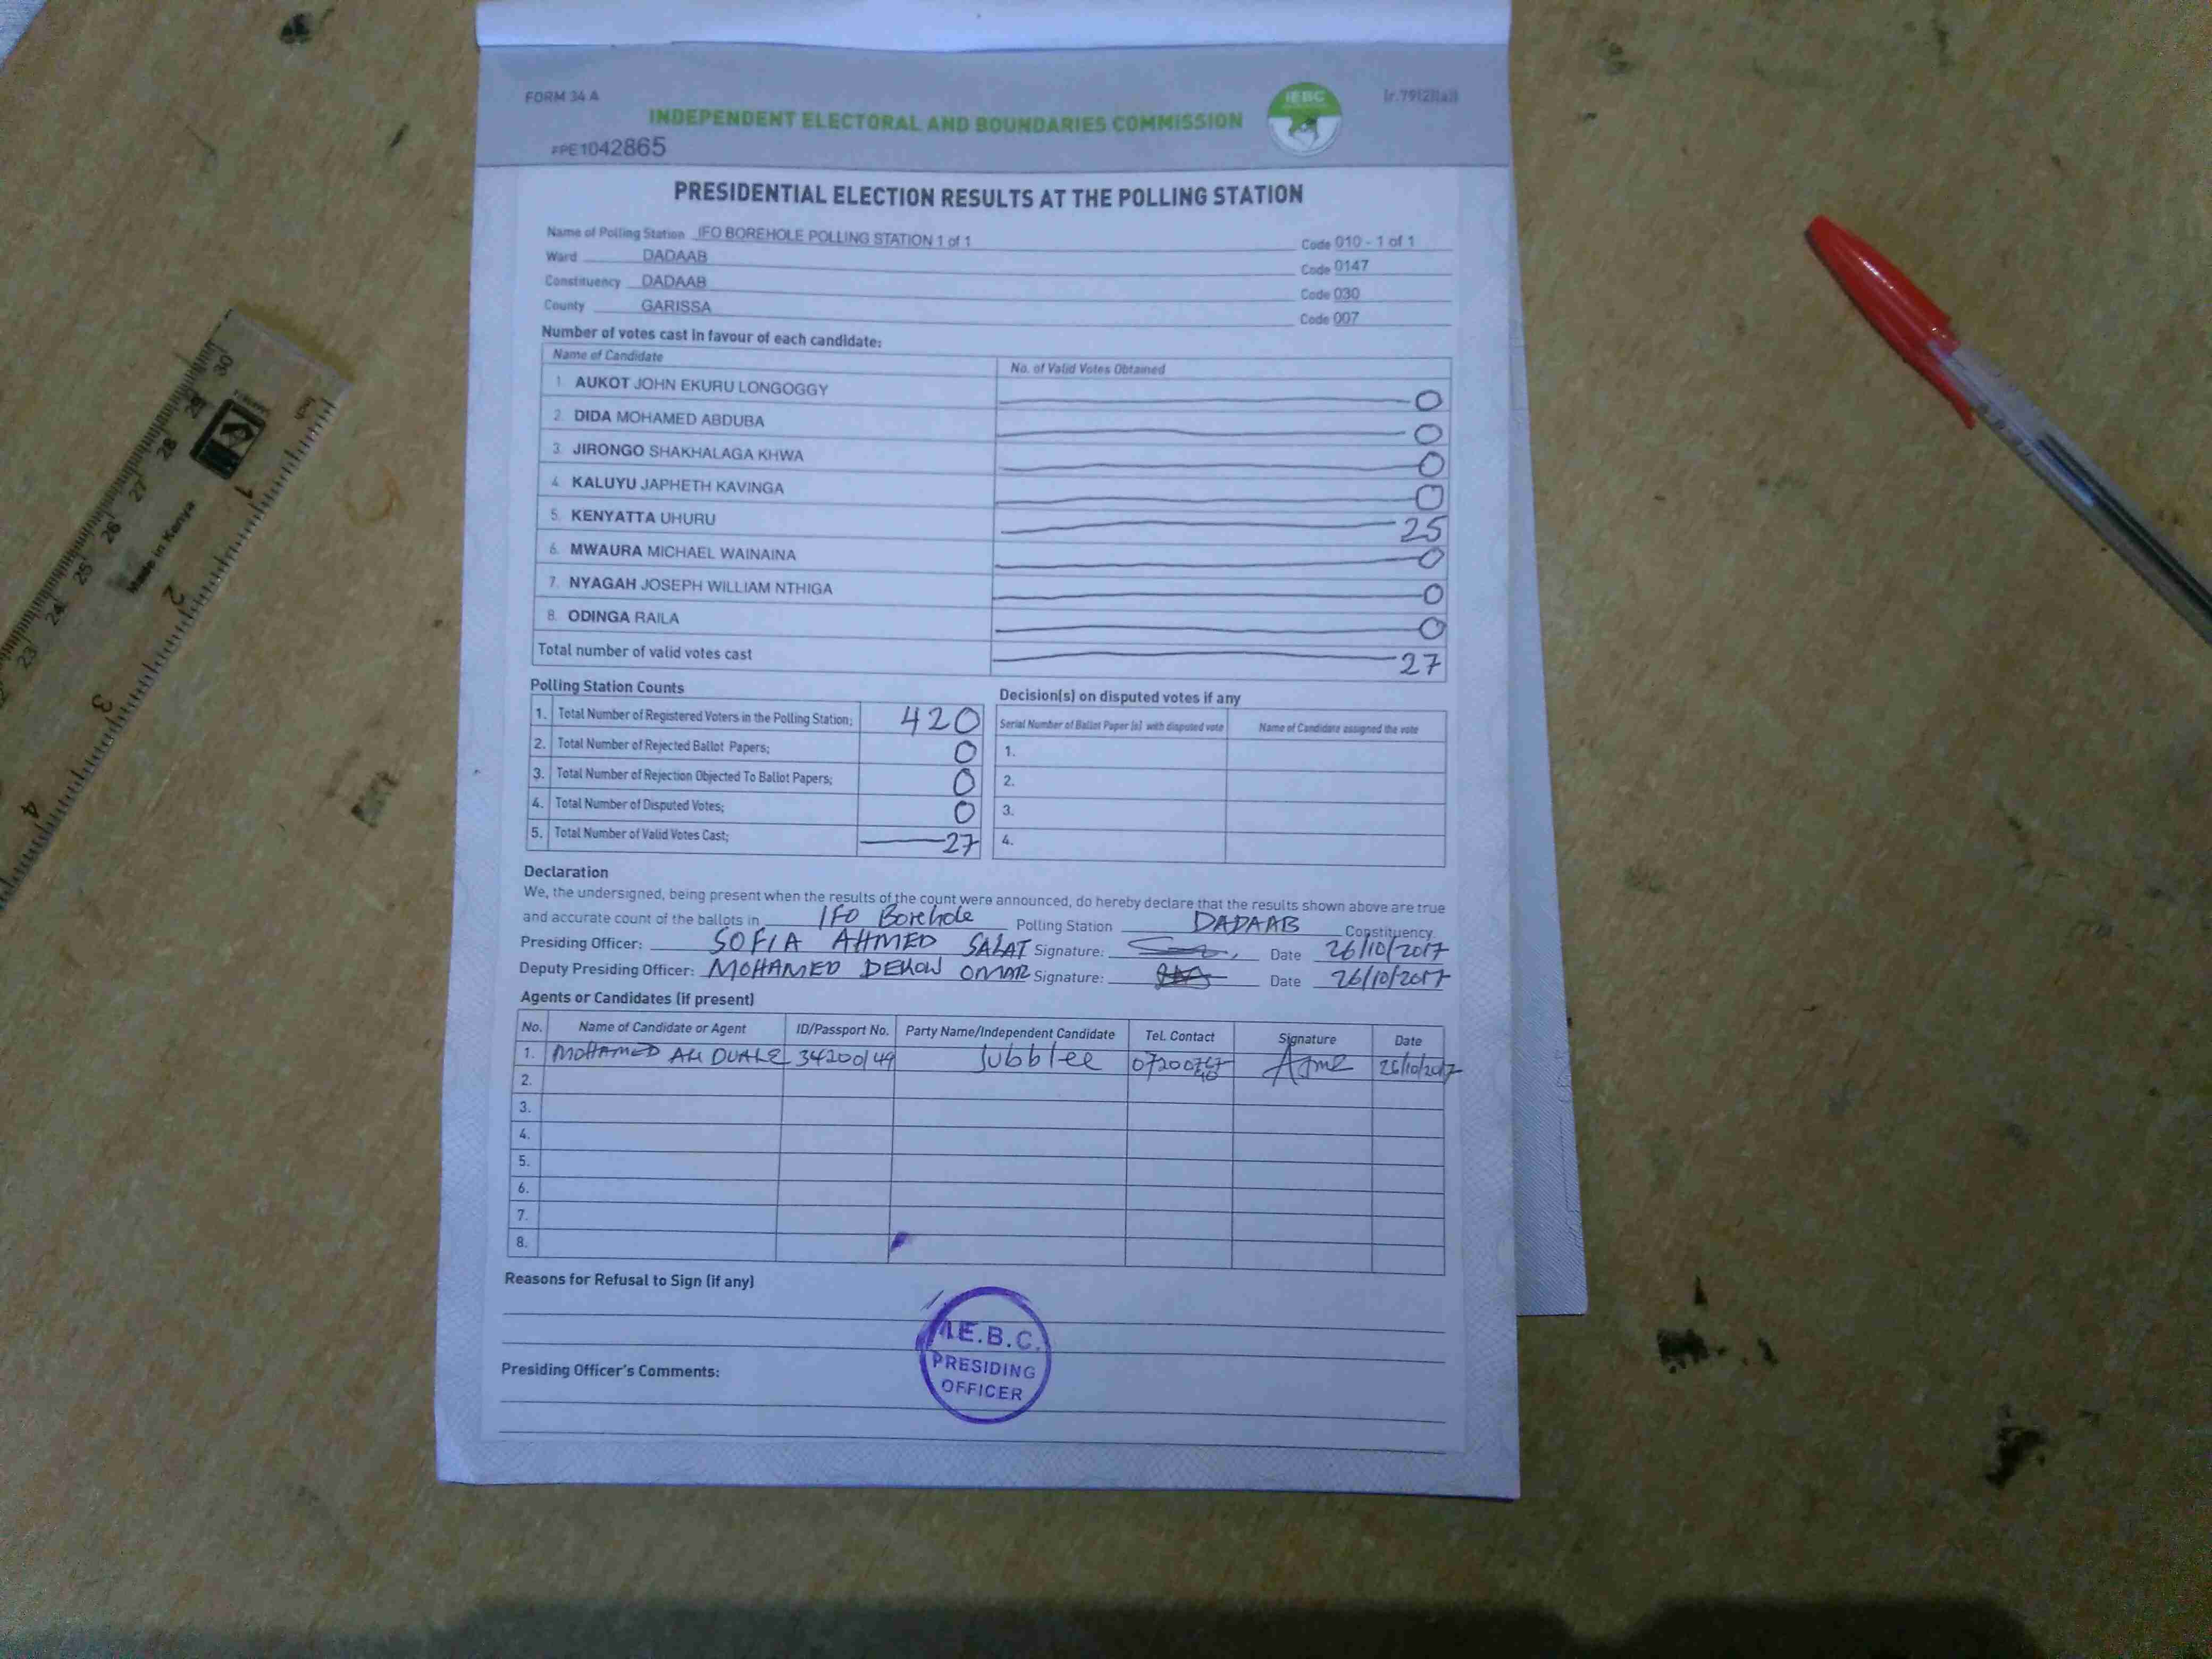 FORM 34 A
INDEPENDENT ELECTORAL AND BOUNDARIES COMMISSION
IEBC
(r.79(2)(a))
#PE1042865
PRESIDENTIAL ELECTION RESULTS AT THE POLLING STATION
Name of Polling Station IFO BOREHOLE POLLING STATION 1 of 1 Code 010 - 1 of 1
Ward DADAAB Code 0147
Constituency DADAAB Code 030
County GARISSA Code 007
Number of votes cast in favour of each candidate:
Name of Candidate No. of Valid Votes Obtained
1. AUKOT JOHN EKURU LONGOGGY 0
2. DIDA MOHAMED ABDUBA 0
3. JIRONGO SHAKHALAGA KHWA 0
4. KALUYU JAPHETH KAVINGA 0
5. KENYATTA UHURU 25
6. MWAURA MICHAEL WAINAINA 0
7. NYAGAH JOSEPH WILLIAM NTHIGA 0
8. ODINGA RAILA 0
Total number of valid votes cast 27
Polling Station Counts
1. Total Number of Registered Voters in the Polling Station; 420
2. Total Number of Rejected Ballot Papers; 0
3. Total Number of Rejection Objected To Ballot Papers; 0
4. Total Number of Disputed Votes; 0
5. Total Number of Valid Votes Cast; 27
Decision(s) on disputed votes if any
Serial Number of Ballot Paper (s) with disputed vote Name of Candidate assigned the vote
1.
2.
3.
4.
Declaration
We, the undersigned, being present when the results of the count were announced, do hereby declare that the results shown above are true
and accurate count of the ballots in IFO Borehole Polling Station DADAAB Constituency.
Presiding Officer: SOFIA AHMED SALAT Signature: Date 26/10/2017
Deputy Presiding Officer: MOHAMED DEKOW OMAR Signature: Date 26/10/2017
Agents or Candidates (if present)
No. Name of Candidate or Agent ID/Passport No. Party Name/Independent Candidate Tel. Contact Signature Date
1. MOHAMED ALI DUALE 34200149 Jubblee 26/10/2017
2.
3.
4.
5.
6.
7.
8.
Reasons for Refusal to Sign (if any)
I.E.B.C.
PRESIDING
OFFICER
Presiding Officer's Comments:
Made in Kenya
inch
30
29
28
27
26
25
24
23
1
2
3
4